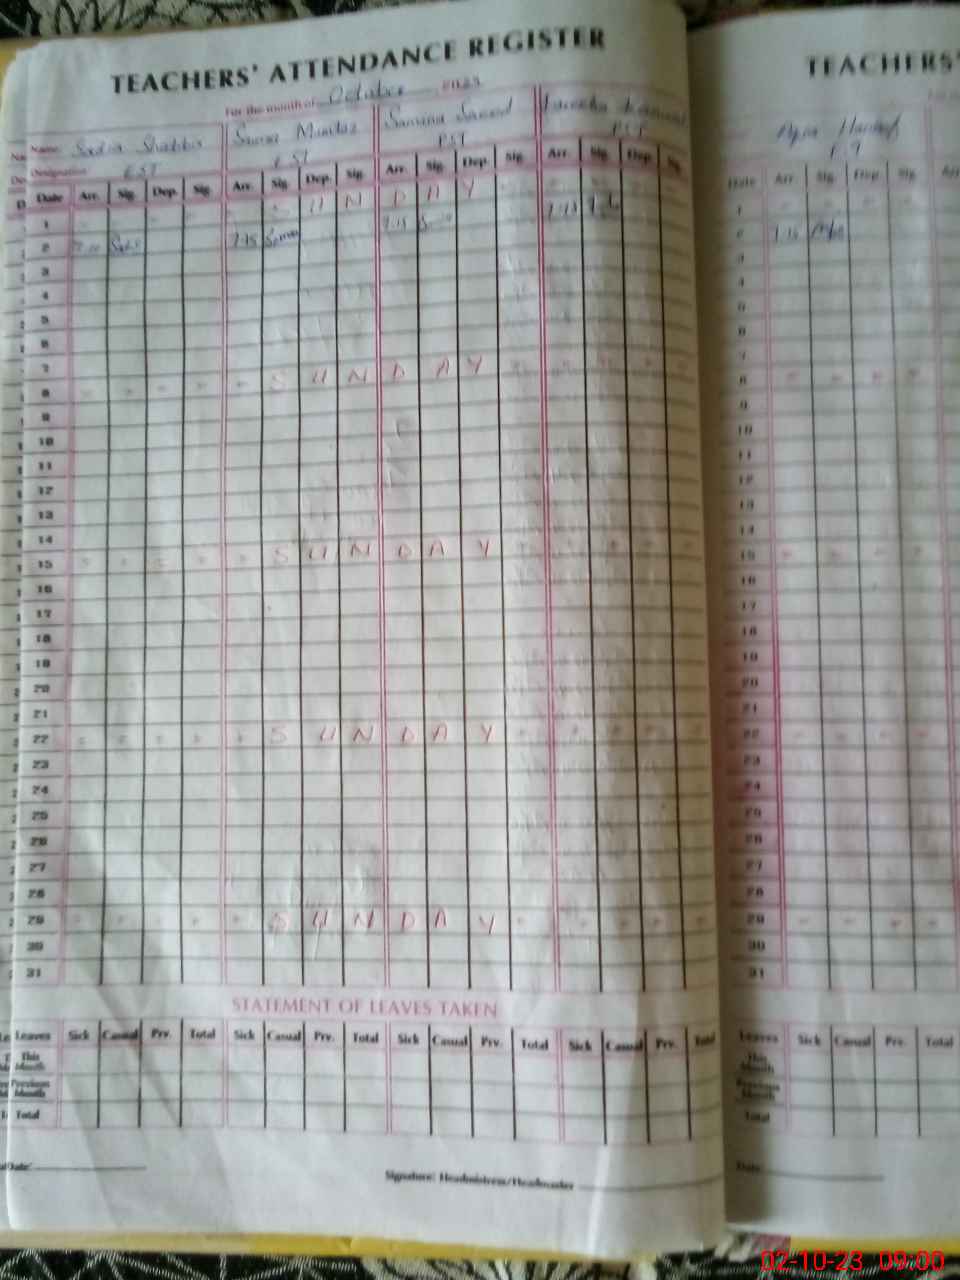 TEACHERS' ATTENDANCE REGISTER
For the month of October 2023
Name: Sadia Shabbir Samra Mumtaz Samina Saeed
Designation: EST EST PST PST
Date Arr. Sig. Dep. Sig. Arr. Sig. Dep. Sig. Arr. Sig. Dep. Sig. Arr. Sig. Dep. Sig.
1 S U N D A Y
2 7:15 7:15 7:15
3
4
5
6
7
8 S U N D A Y
9
10
11
12
13
14
15 S U N D A Y
16
17
18
19
20
21
22 S U N D A Y
23
24
25
26
27
28
29 S U N D A Y
30
31
STATEMENT OF LEAVES TAKEN
Leaves Sick Casual Prv. Total Sick Casual Prv. Total Sick Casual Prv. Total Sick Casual Prv. Total
This Month
Previous Month
Total
Date:
Signature: Headmistress/Headmaster
TEACHERS'
Date Arr. Sig. Dep. Sig. Arr.
1
2 7:15
3
4
5
6
7
8
9
10
11
12
13
14
15
16
17
18
19
20
21
22
23
24
25
26
27
28
29
30
31
Leaves Sick Casual Prv. Total
This Month
Previous Month
Total
Date:
02-10-23 09:00